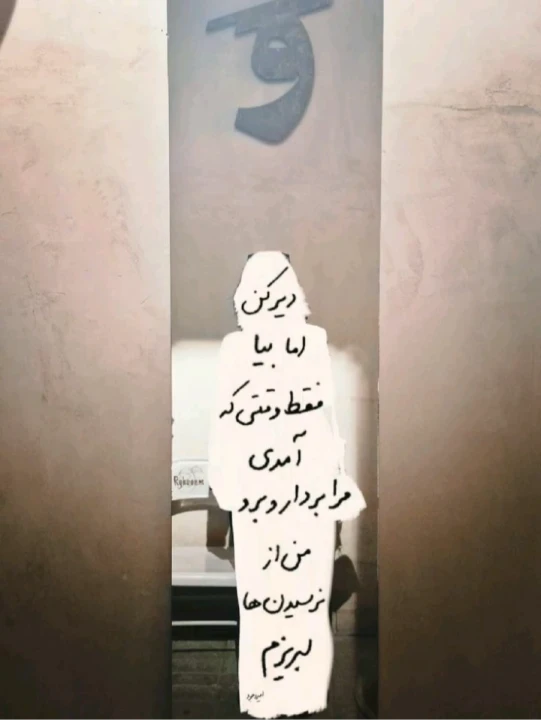 دیر کن
اما بیا
فقط وقتی که
آمدی
مرا بردار و برو
من از
نرسیدن‌ها
لبریزم